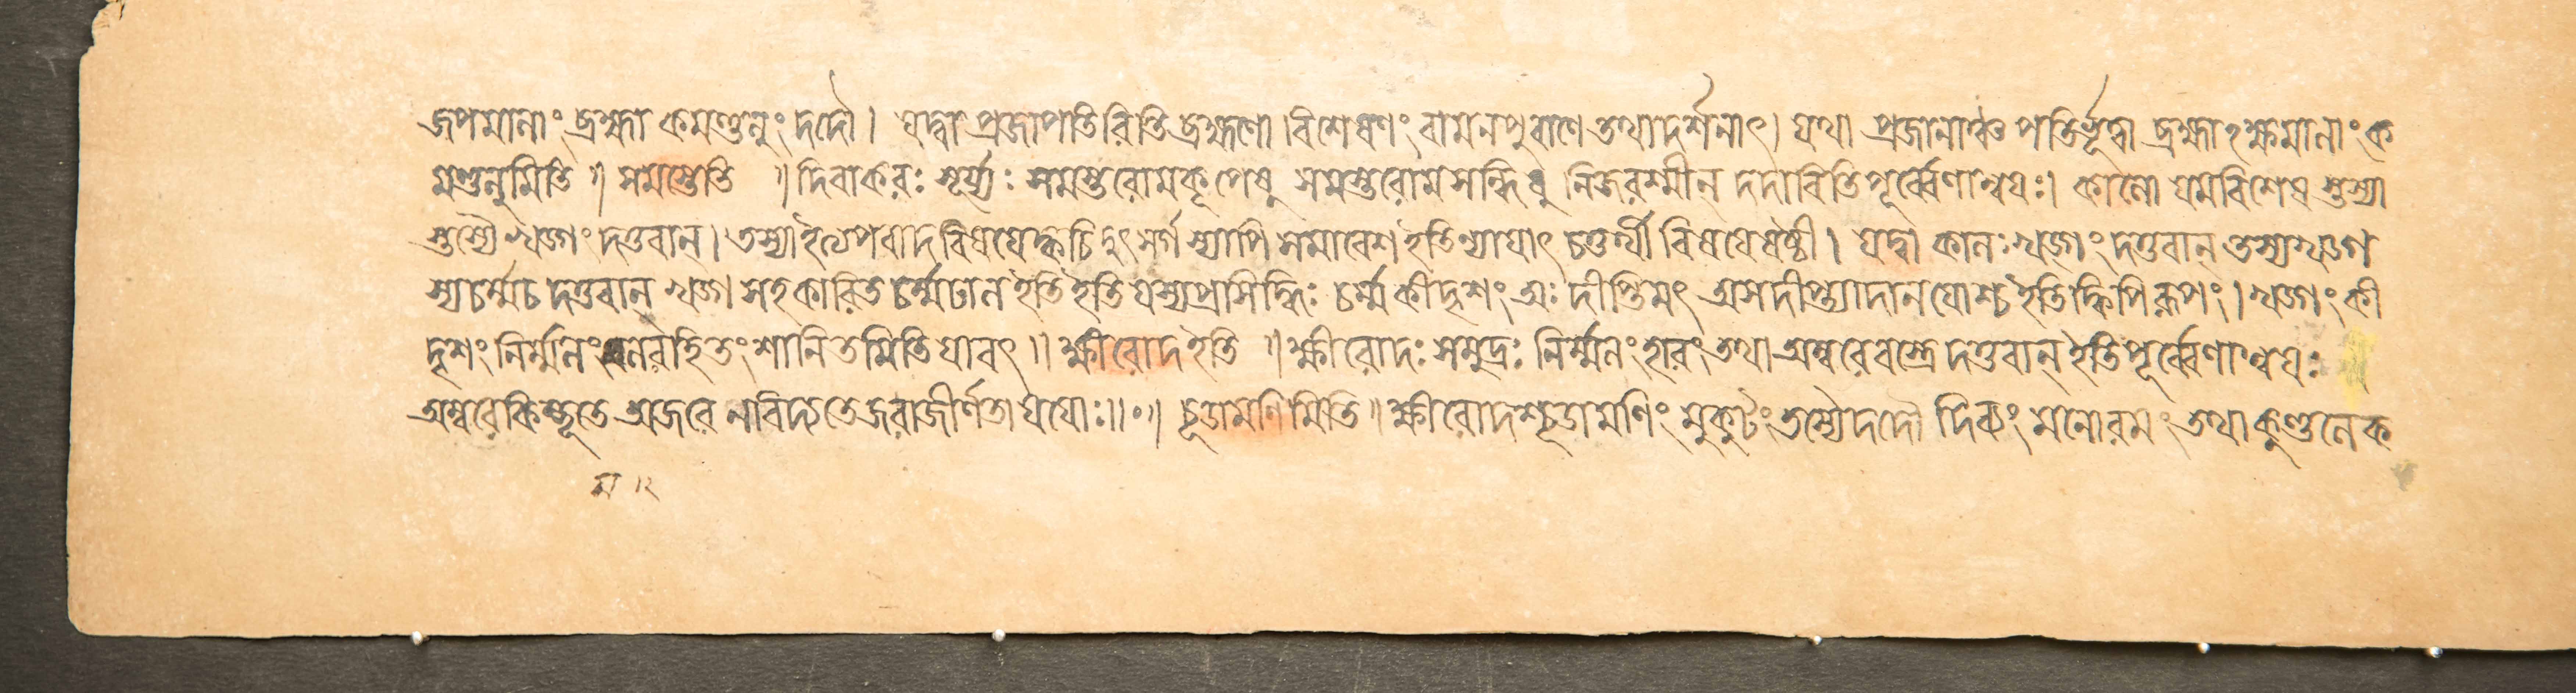 জপমানাং ব্রহ্মা কমণ্ডলুং দদৌ। যদ্বা প্রজাপতিরিতি ব্রহ্মণো বিশেষণং বামনপুরাণে তথাদর্শনাৎ। যথা প্রজানাঞ্চ পতির্ভূত্বা ব্রহ্মাঽক্ষমালাং ক
মণ্ডলুমিতি ॥ সমস্তেতি ॥ দিবাকরঃ সূর্য্যঃ সমস্তরোমকূপেষু সমস্তরোমসন্ধিষু নিজরশ্মীন্ দদাবিতি পূর্ব্বেণান্বয়ঃ। কালো যমবিশেষস্তস্যা
স্তস্যৈ খড়্গং দত্তবান্। তস্যাইত্যপবাদবিষযেক্বচিদুৎসর্গস্যাপি সমাবেশইতিন্যাযাৎ চতুর্থী বিষযেষষ্ঠী। যদ্বা কালঃ খড়্গং দত্তবান্ তস্যখড়্গ
স্যচর্ম্মচ দত্তবান্ খড়্গসহকারিত চর্ম্মঢাল ইতিইতি যস্যপ্রসিদ্ধিঃ চর্ম্ম কীদৃশং অঃ দীপ্তিমৎ অসদীপ্ত্যাদানযোশ্চইতিক্বিপিরূপং। খড়্গং কী
দৃশং নির্ম্মলং মলরহিতং শানিতমিতি যাবৎ॥ ক্ষীরোদইতি ॥ ক্ষীরোদঃ সমুদ্রঃ নির্ম্মলং হারং তথা অম্বরেবস্ত্রে দত্তবান্ ইতিপূর্ব্বেণান্বযঃ
অম্বরেকিম্ভূতে অজরে নবিদ্যতেজরাজীর্ণতা যযোঃ॥০॥ চূডামণিমিতি ॥ ক্ষীরোদশ্চূডামণিং মুকুটং তস্যৈদদৌ দিব্যং মনোরমং তথাকুণ্ডলেক
ম ॥২